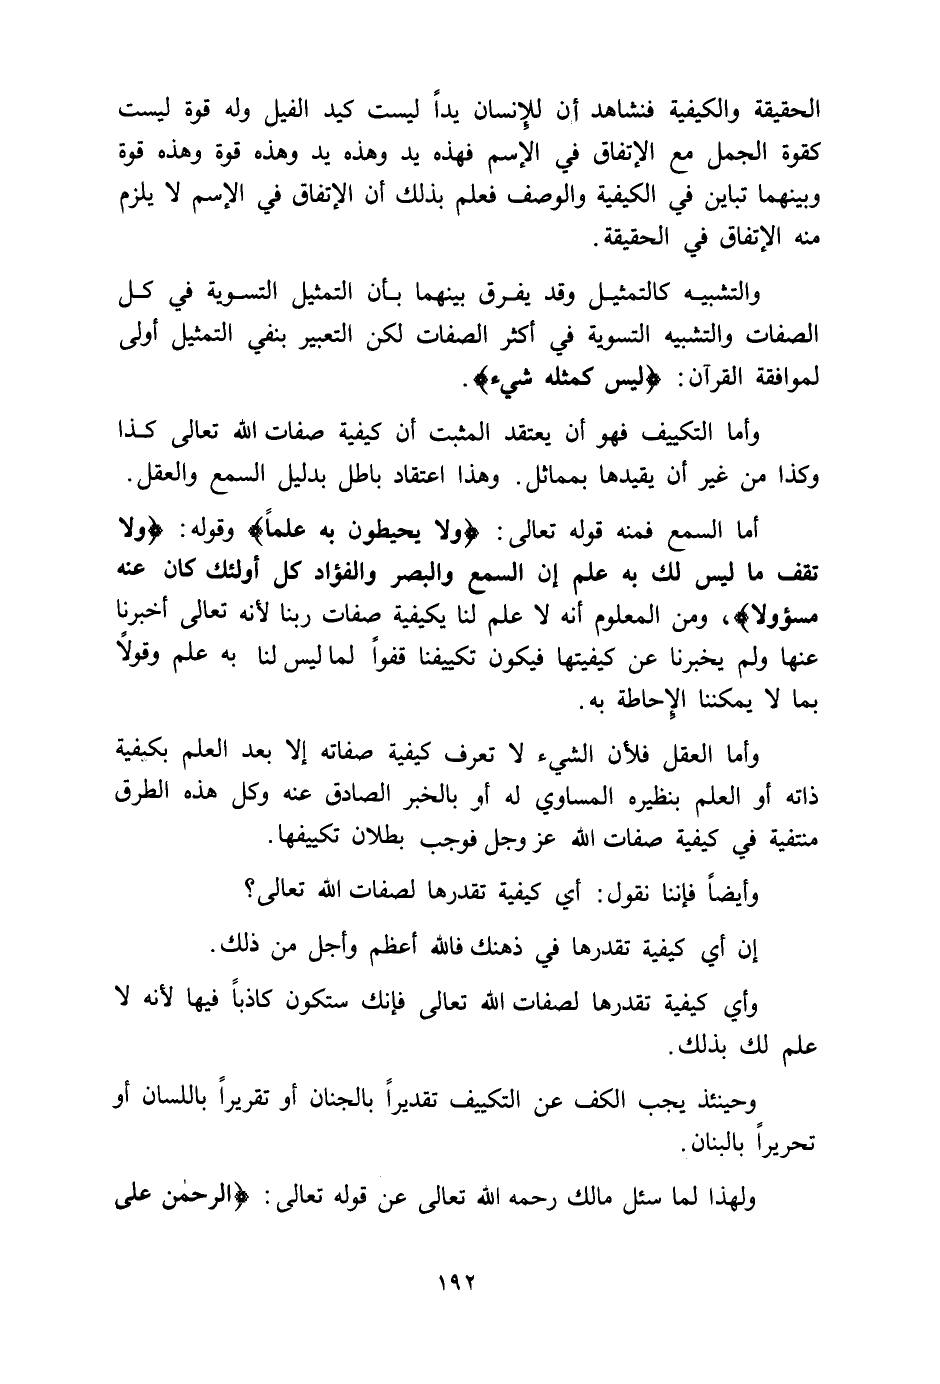 الحقيقة والكيفية فنشاهد أن للإنسان يداً ليست كيد الفيل وله قوة ليست
كقوة الجمل مع الإتفاق في الإسم فهذه يد وهذه يد وهذه قوة وهذه قوة
وبينهما تباين في الكيفية والوصف فعلم بذلك أن الإتفاق في الإسم لا يلزم
منه الإتفاق في الحقيقة.
والتشبيه كالتمثيل وقد يفرق بينهما بأن التمثيل التسوية في كل
الصفات والتشبيه التسوية في أكثر الصفات لكن التعبير بنفي التمثيل أولى
لموافقة القرآن: ﴿ليس كمثله شيء﴾.
وأما التكييف فهو أن يعتقد المثبت أن كيفية صفات الله تعالى كذا
وكذا من غير أن يقيدها بمماثل. وهذا اعتقاد باطل بدليل السمع والعقل.
أما السمع فمنه قوله تعالى: ﴿ولا يحيطون به علماً﴾ وقوله: ﴿ولا
تقف ما ليس لك به علم إن السمع والبصر والفؤاد كل أولئك كان عنه
مسؤولا﴾، ومن المعلوم أنه لا علم لنا يكيفية صفات ربنا لأنه تعالى أخبرنا
عنها ولم يخبرنا عن كيفيتها فيكون تكييفنا قفواً لما ليس لنا به علم وقولاً
بما لا يمكننا الإحاطة به.
وأما العقل فلأن الشيء لا تعرف كيفية صفاته إلا بعد العلم بكيفية
ذاته أو العلم بنظيره المساوي له أو بالخبر الصادق عنه وكل هذه الطرق
منتفية في كيفية صفات الله عز وجل فوجب بطلان تكييفها.
وأيضاً فإننا نقول: أي كيفية تقدرها لصفات الله تعالى؟
إن أي كيفية تقدرها في ذهنك فالله أعظم وأجل من ذلك.
وأي كيفية تقدرها لصفات الله تعالى فإنك ستكون كاذباً فيها لأنه لا
علم لك بذلك.
وحينئذ يجب الكف عن التكييف تقديراً بالجنان أو تقريراً باللسان أو
تحريراً بالبنان.
ولهذا لما سئل مالك رحمه الله تعالى عن قوله تعالى: ﴿الرحمٰن على
١٩٢